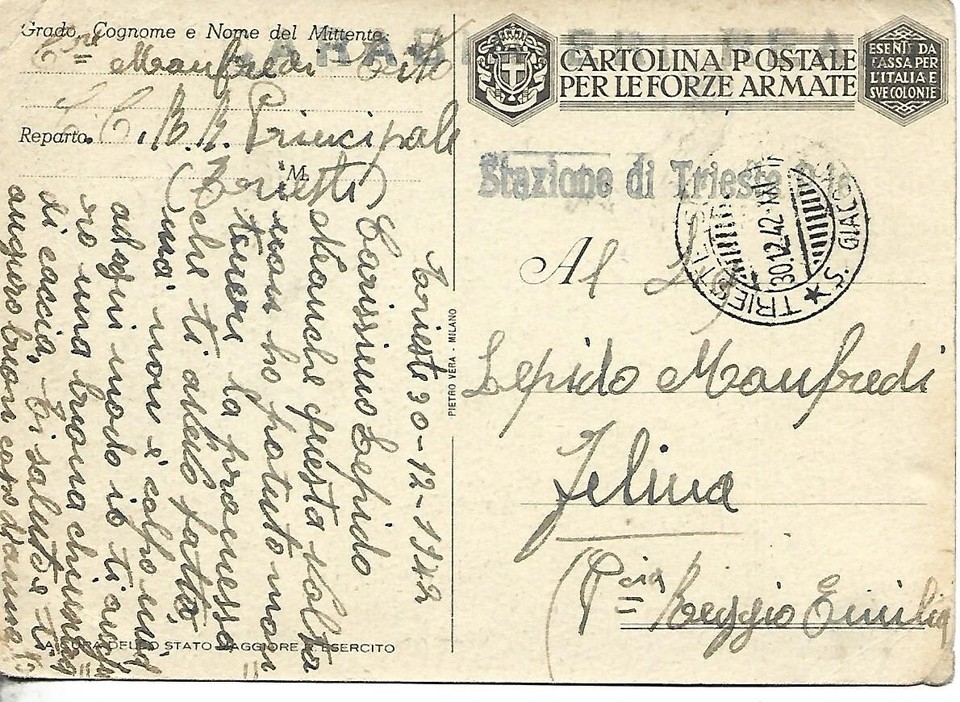 Grado, Cognome e Nome del Mittente:
Manfredi Tito
Reparto. C.C. R.R. Principale
M.
(Trieste)
CARABINIERI REALI
CARTOLINA POSTALE
PER LE FORZE ARMATE
ESENTE DA
TASSA PER
L'ITALIA E
SVE COLONIE
Stazione di Trieste
TRIESTE
S. GIACOMO
30.12.42.XXI
Al
Lepido Manfredi
Felina
(Pcia Reggio Emilia
PIETRO VERA - MILANO
A CURA DELLO STATO MAGGIORE R. ESERCITO
Trieste 30-12-1942
Carissimo Lepido
anche questa volta
non ho potuto man
tenere la promessa
che ti avevo fatta,
ma non è colpa mia
ad ogni modo io ti
ro una buona
di caccia. Ti saluto e ti
auguro buon capo d'anno